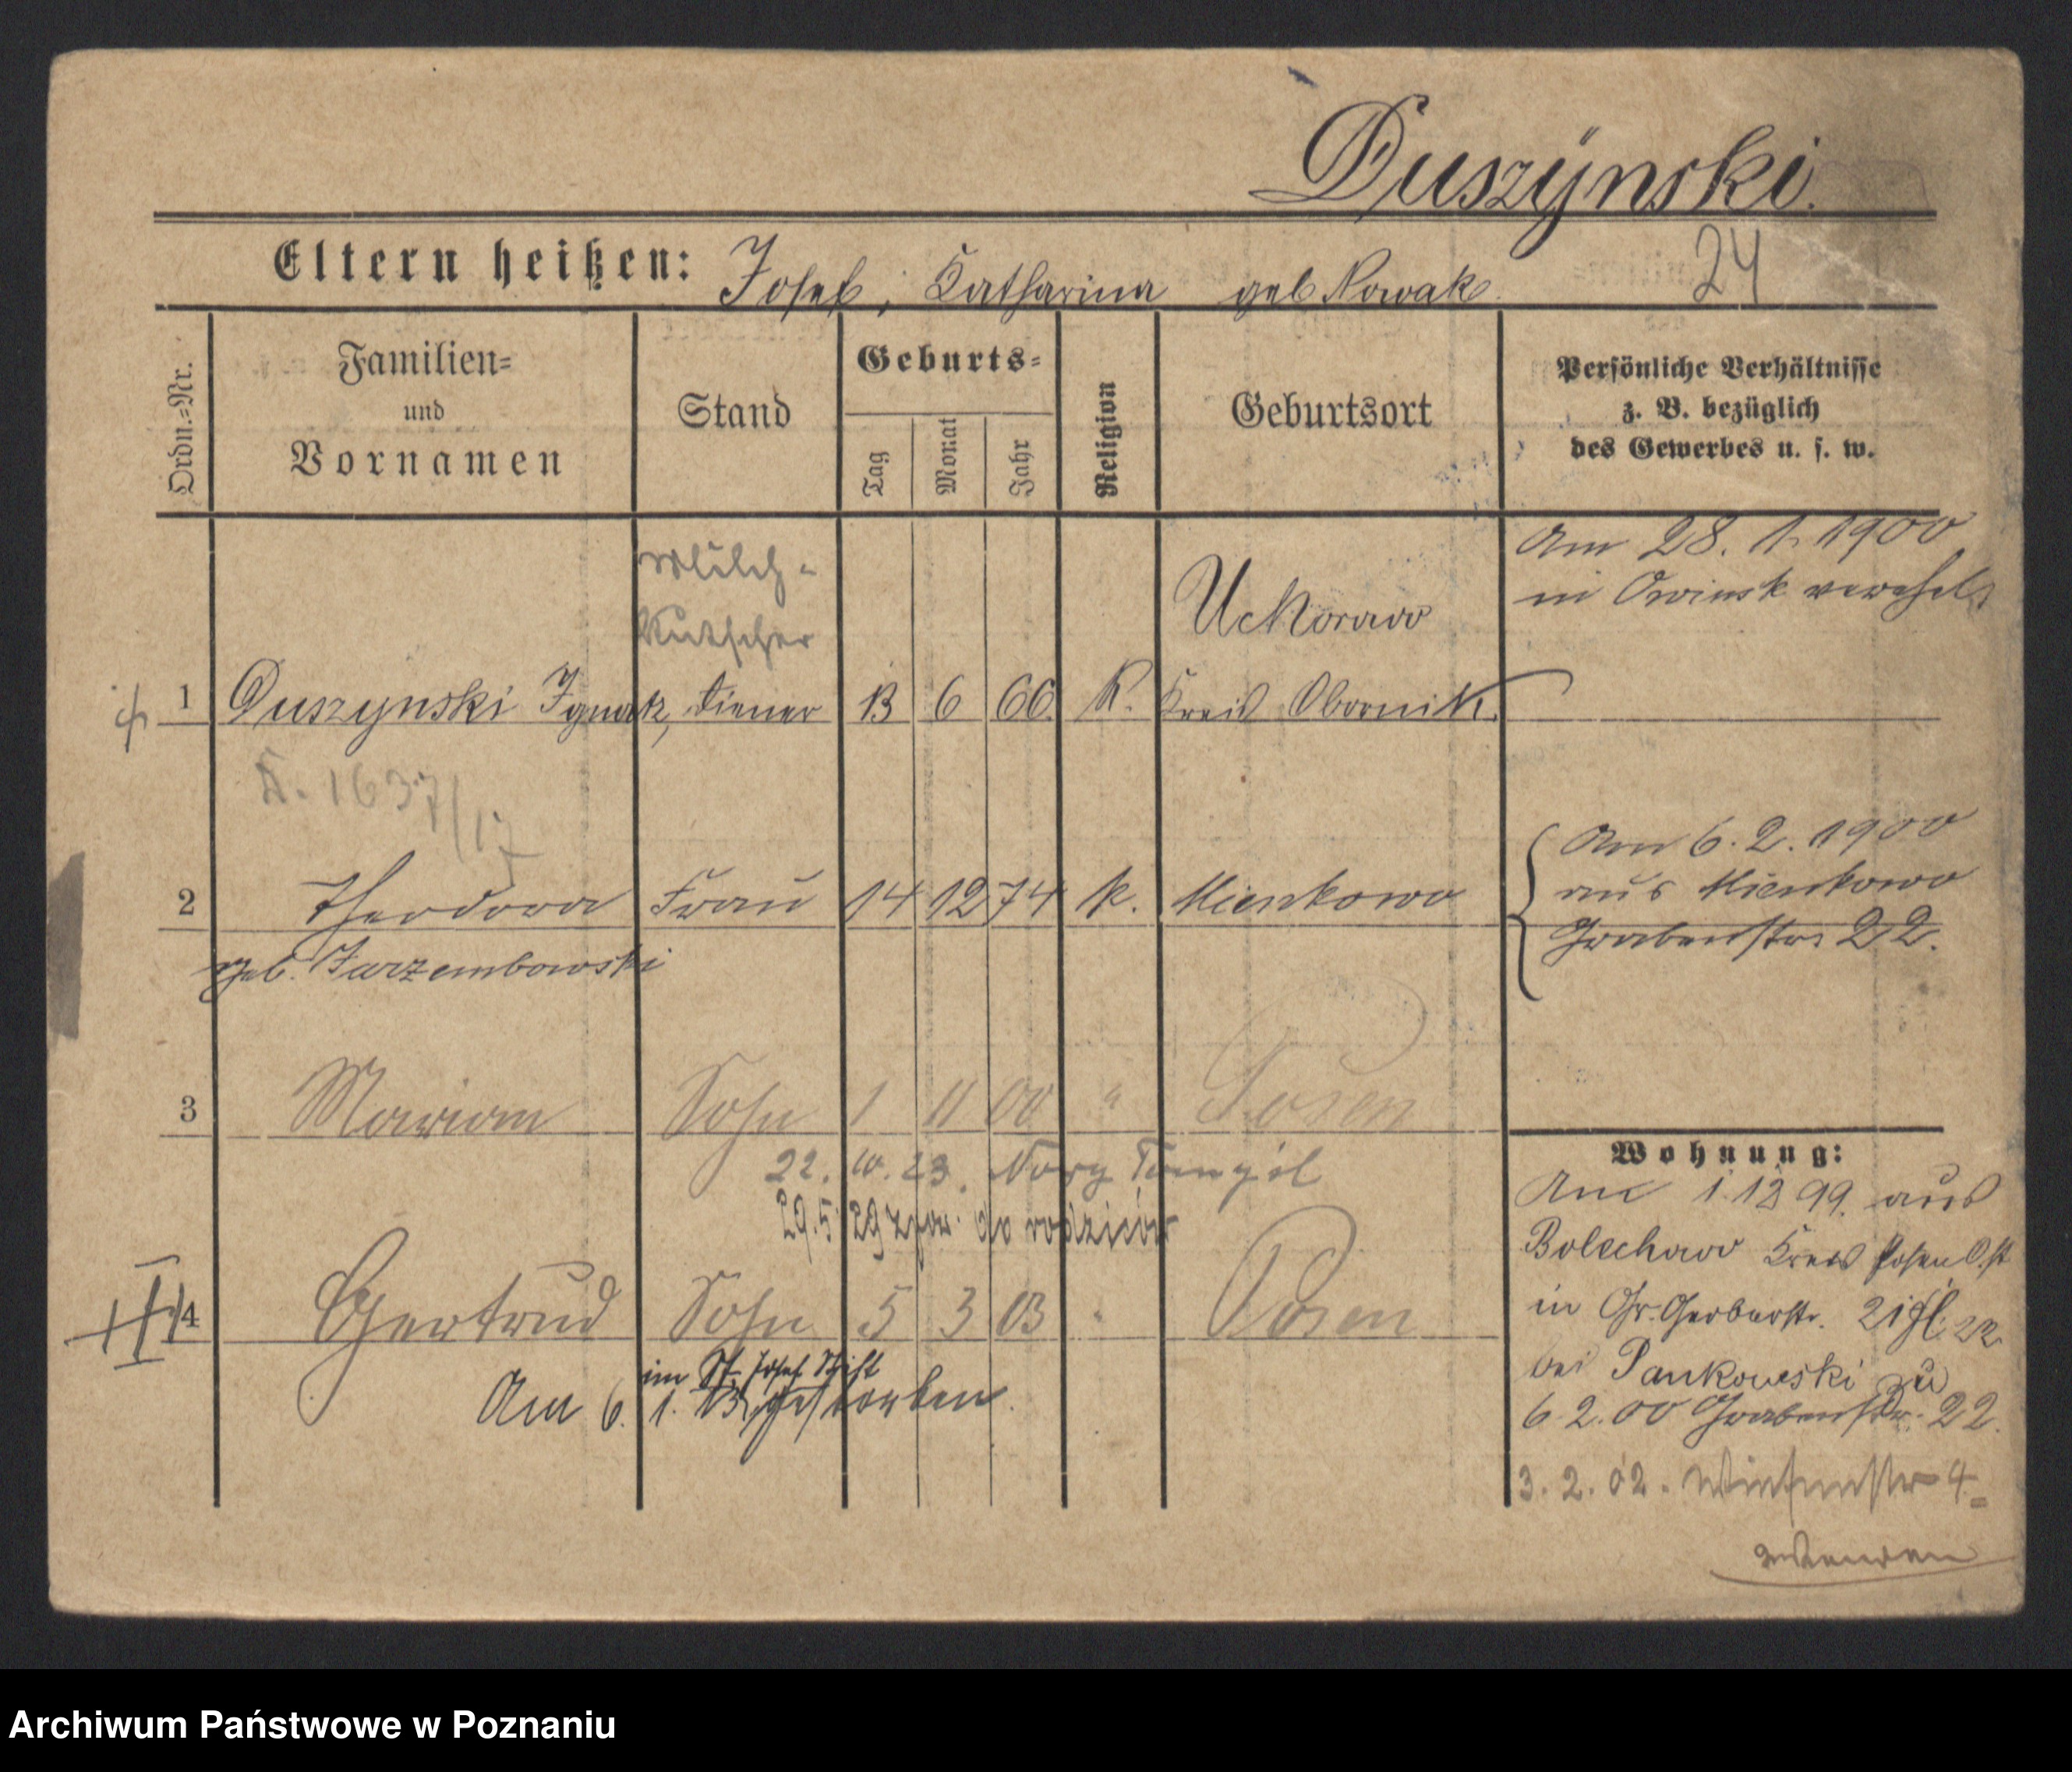 Duszÿnski.
Eltern heißen: Josef, Katharina geb Nowak.
24
Ordn.=Nr.
Familien=
und
Vornamen
Stand
Geburts=
Tag
Monat
Jahr
Religion
Geburtsort
Persönliche Verhältnisse
z. B. bezüglich
des Gewerbes u. s. w.
Am 28. 1. 1900
in Owinsk verehel.
Milch-
Kutscher
1 Duszynski Ignatz, Diener 13 6 66 K. Kreis Obornik
K. 1637/17
2 Theodora Frau 14 12 74 k. Mienkowo
geb. Jarzembowski
Am 6. 2. 1900
aus Mienkowo
Grabenstr 22.
3 Marian Sohn 1 11 00 " Posen
22. 10. 23. Nowy Tomyśl
29.5 29 zpow. do rodziców
4 Gertrud Sohn 5 3 03 " Posen
im St. Josef Stift
Am 6. 1. 13 gestorben.
Wohnung:
Am 1. 12 99. aus
Bolechowo Kreis Posen Ost
in Gr. Gerberstr. 21
bei Pankowski
6. 2. 00 Grabenstr. 22.
3. 2. 02. 4
wenden